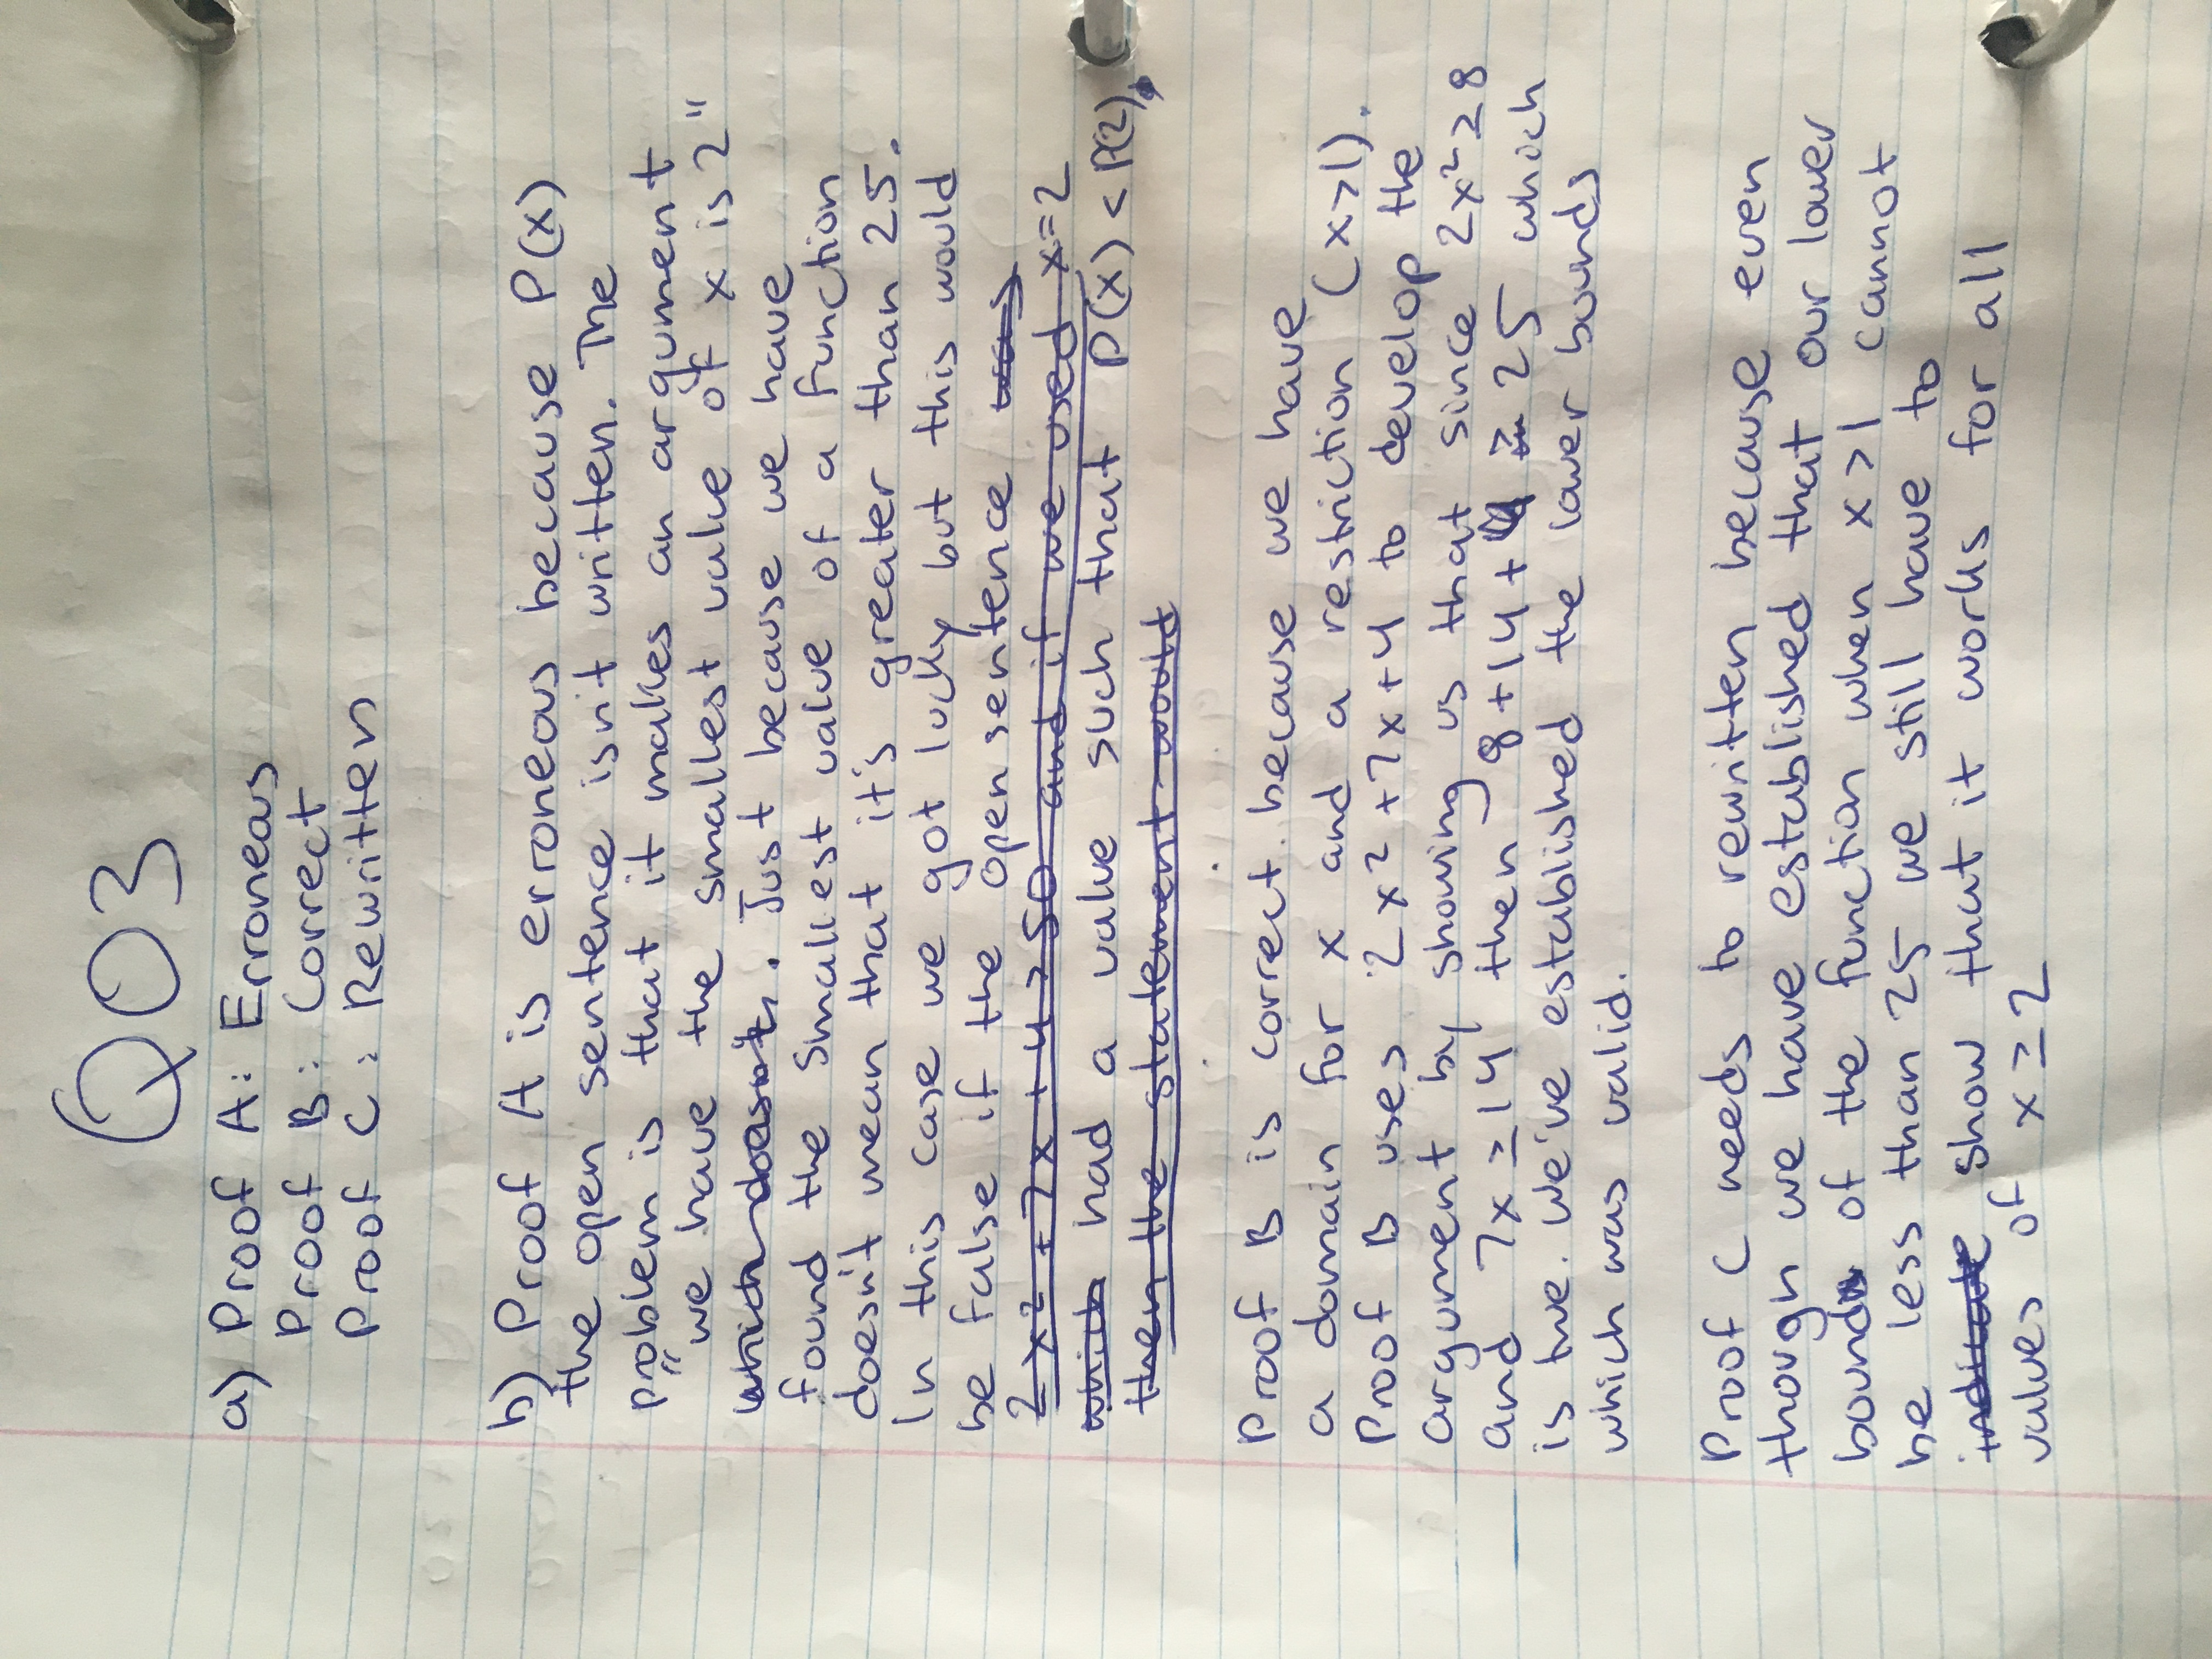 Q03
a) Proof A: Erroneous
Proof B: Correct
Proof C: Rewritten
b) Proof A is erroneous because P(x)
the open sentence isn't written. The
problem is that it makes an argument
"we have the smallest value of x is 2"
which doesn't. Just because we have
found the smallest value of a function
doesn't mean that it's greater than 25.
In this case we got lucky but this would
be false if the open sentence was
2x² + 7x + 4 > 50 and if we used x=2
which had a value such that P(x) < P(2).
then the statement would
Proof B is correct. because we have
a domain for x and a restriction (x>1).
Proof B uses 2x² + 7x + 4 to develop the
argument by showing us that since 2x² ≥ 8
and 7x ≥ 14 then 8 + 14 + 4 ≥ 25 which
is true. We've established the lower bounds
which was valid.
Proof C needs to rewritten because even
though we have established that our lower
bound of the function when x > 1 cannot
be less than 25 we still have to
indicate show that it works for all
values of x ≥ 2